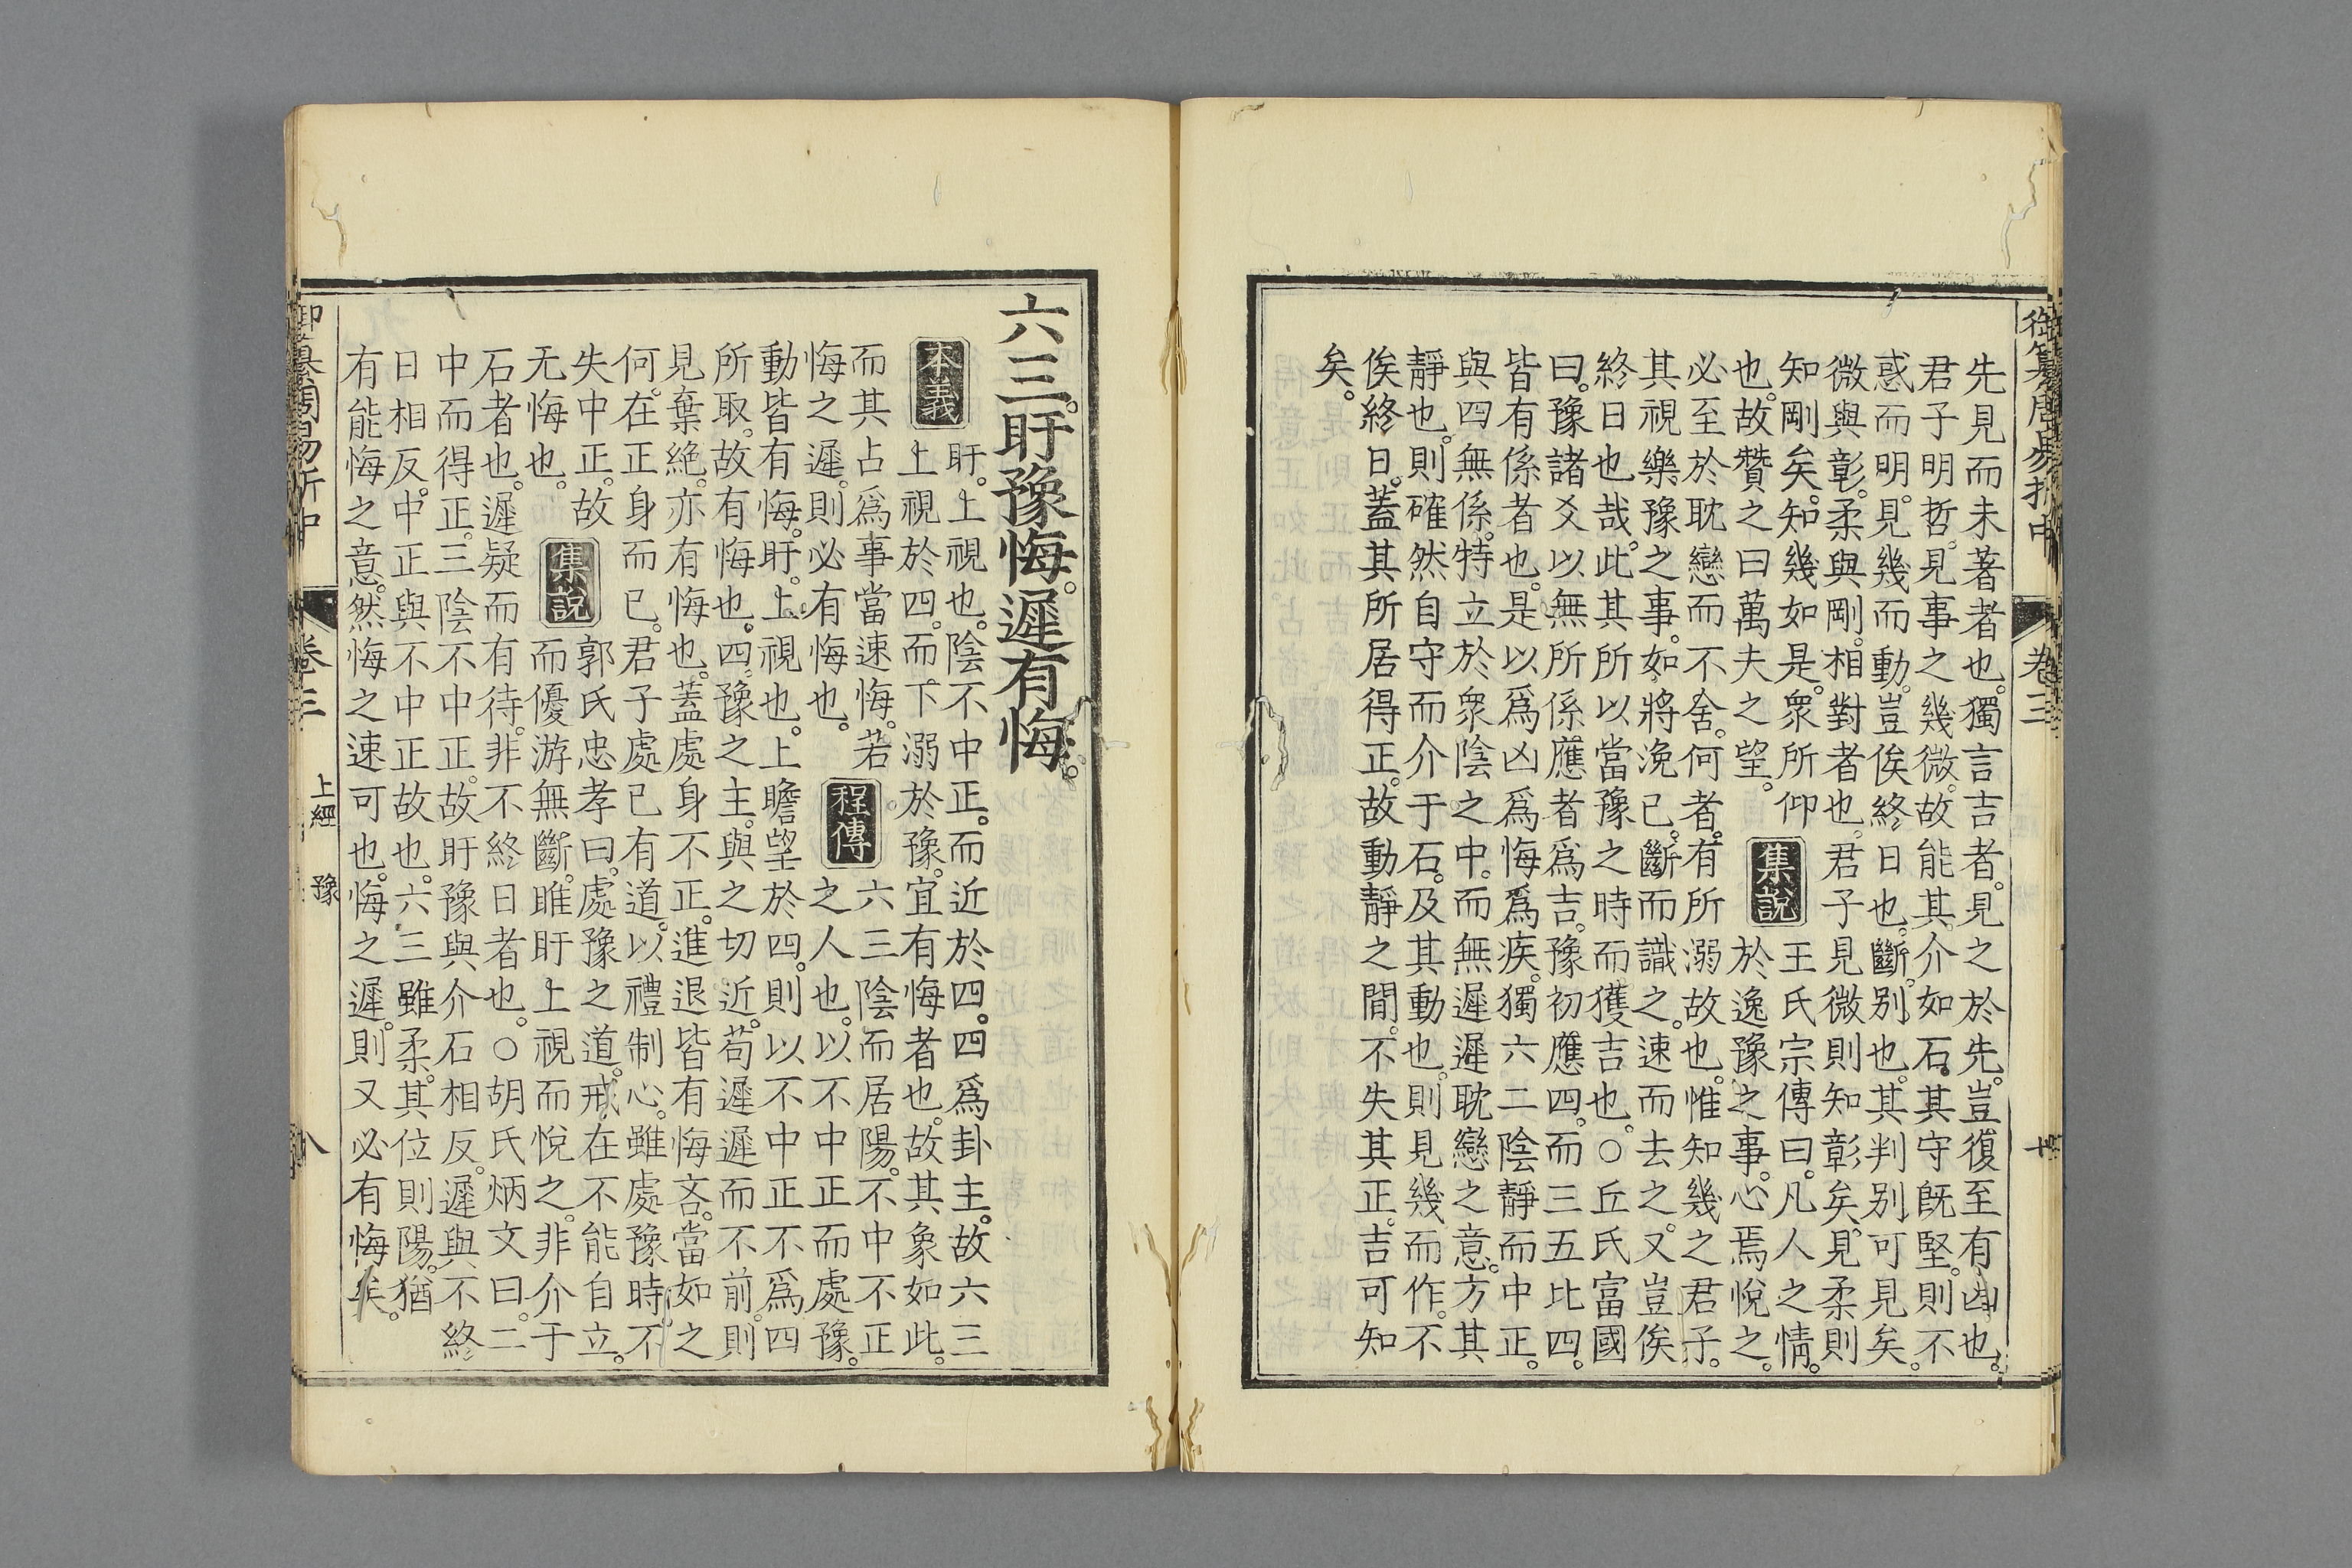 御纂周易折中 卷三 七
先見而未著者也。獨言吉者。見之於先。豈復至有凶也。
君子明哲。見事之幾微。故能其介如石。其守既堅。則不
惑而明。見幾而動。豈俟終日也。斷別也。其判別可見矣。
微與彰。柔與剛。相對者也。君子見微則知彰矣。見柔則
知剛矣。知幾如是。衆所仰
也。故贊之曰萬夫之望。
集說
王氏宗傳曰。凡人之情。
於逸豫之事。心焉悅之。
必至於耽戀而不舍。何者。有所溺故也。惟知幾之君子。
其視樂豫之事。如將浼已。斷而識之。速而去之。又豈俟
終日也哉。此其所以當豫之時而獲吉也。○丘氏富國
曰。豫諸爻以無所係應者爲吉。豫初應四。而三五比四。
皆有係者也。是以爲凶爲悔爲疾。獨六二陰靜而中正。
與四無係。特立於衆陰之中。而無遲遲耽戀之意。方其
靜也。則確然自守而介于石。及其動也。則見幾而作。不
俟終日。蓋其所居得正。故動靜之間。不失其正。吉可知
矣。
六三。盱豫悔。遲有悔。
本義
盱。上視也。陰不中正。而近於四。四爲卦主。故六三
上視於四。而下溺於豫。宜有悔者也。故其象如此。
而其占爲事當速悔。若
悔之遲。則必有悔也。
程傳
六三陰而居陽。不中不正
之人也。以不中正而處豫。
動皆有悔。盱。上視也。上瞻望於四。則以不中正不爲四
所取。故有悔也。四豫之主。與之切近。苟遲遲而不前。則
見棄絶。亦有悔也。蓋處身不正。進退皆有悔吝。當如之
何。在正身而已。君子處已有道。以禮制心。雖處豫時不
失中正。故
无悔也。
集說
郭氏忠孝曰。處豫之道。戒在不能自立。
而優游無斷。睢盱上視而悅之。非介于
石者也。遲疑而有待。非不終日者也。○胡氏炳文曰。二
中而得正。三陰不中正。故盱豫與介石相反。遲與不終
日相反。中正與不中正故也。六三雖柔。其位則陽。猶
有能悔之意。然悔之速可也。悔之遲。則又必有悔矣。
御纂周易折中 卷三 上經 豫 八